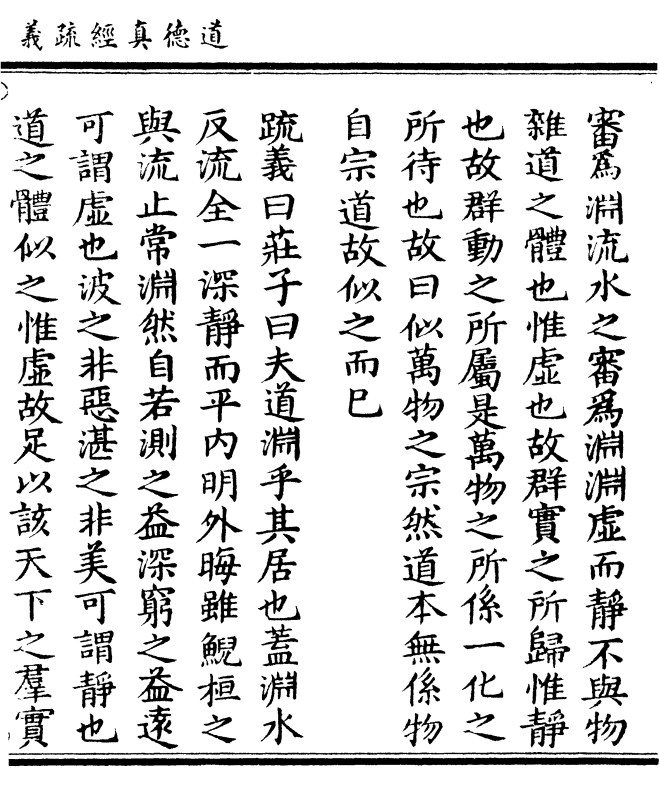 道德真經疏義
審爲淵流水之審爲淵淵虛而靜不與物
雜道之體也惟虛也故群實之所歸惟靜
也故群動之所屬是萬物之所係一化之
所待也故曰似萬物之宗然道本無係物
自宗道故似之而巳
疏義曰莊子曰夫道淵乎其居也蓋淵水
反流全一深靜而平內明外晦雖鯢桓之
與流止常淵然自若測之益深窮之益遠
可謂虛也波之非惡湛之非美可謂靜也
道之體似之惟虛故足以該天下之羣實